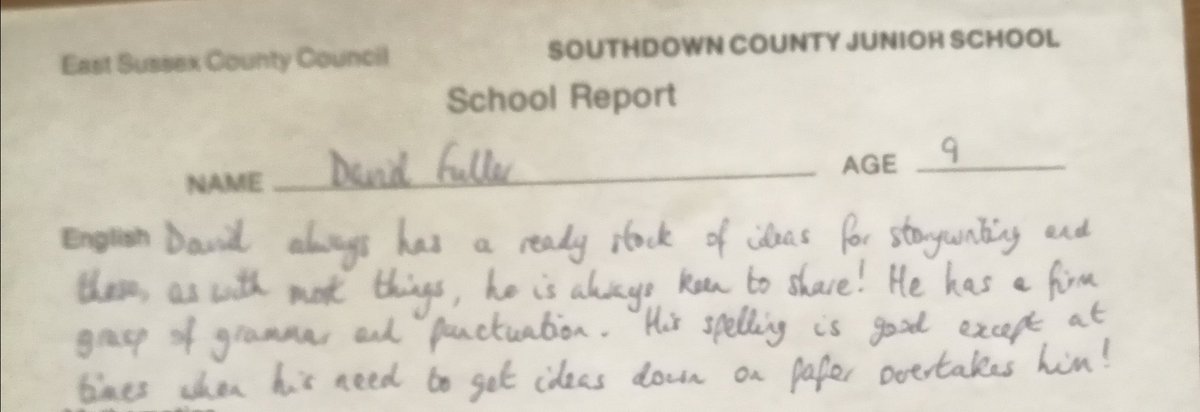 East Sussex County Council
SOUTHDOWN COUNTY JUNIOR SCHOOL
School Report
NAME David Fuller AGE 9
English David always has a ready stock of ideas for storywriting and
these, as with most things, he is always keen to share! He has a firm
grasp of grammar and punctuation. His spelling is good except at
times when his need to get ideas down on paper overtakes him!